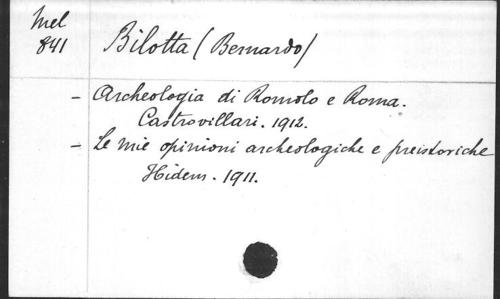 Mel
841
Bilotta (Bernardo)
- Archeologia di Romolo e Roma.
Castrovillari. 1912.
- Le mie opinioni archeologiche e preistoriche
Hidem. 1911.